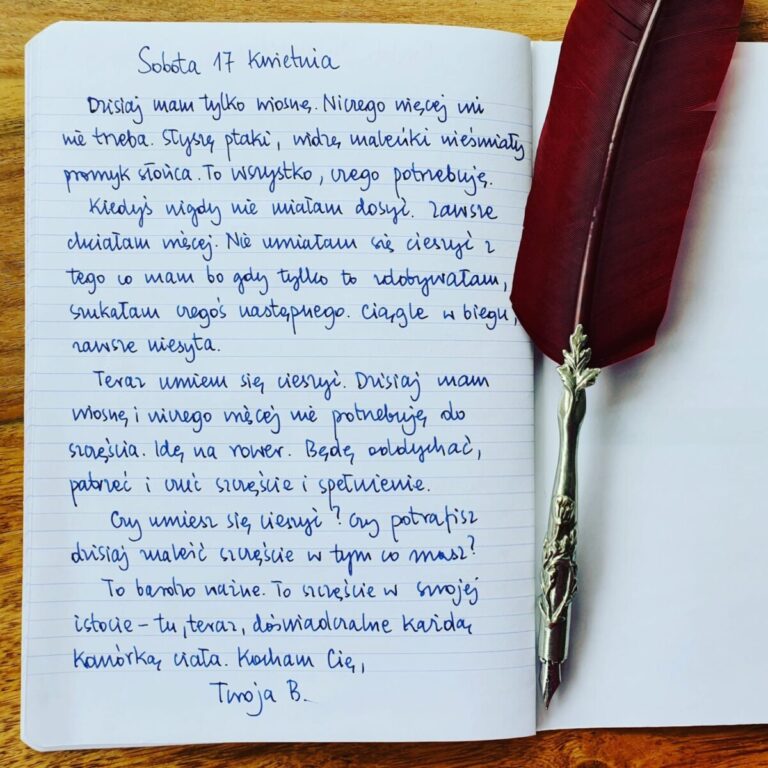 Sobota 17 kwietnia
Dzisiaj mam tylko wiosnę. Niczego więcej mi
nie trzeba. Słyszę ptaki, widzę maleńki nieśmiały
promyk słońca. To wszystko, czego potrzebuję.
Kiedyś nigdy nie miałam dosyć. Zawsze
chciałam więcej. Nie umiałam się cieszyć z
tego co mam bo gdy tylko to zdobywałam,
szukałam czegoś następnego. Ciągle w biegu,
zawsze niesyta.
Teraz umiem się cieszyć. Dzisiaj mam
wiosnę i niczego więcej nie potrzebuję do
szczęścia. Idę na rower. Będę oddychać,
patrzeć i czuć szczęście i spełnienie.
Czy umiesz się cieszyć? Czy potrafisz
dzisiaj znaleźć szczęście w tym co masz?
To bardzo ważne. To szczęście w swojej
istocie - tu, teraz, doświadczalne każdą
komórką ciała. Kocham Cię,
Twoja B.